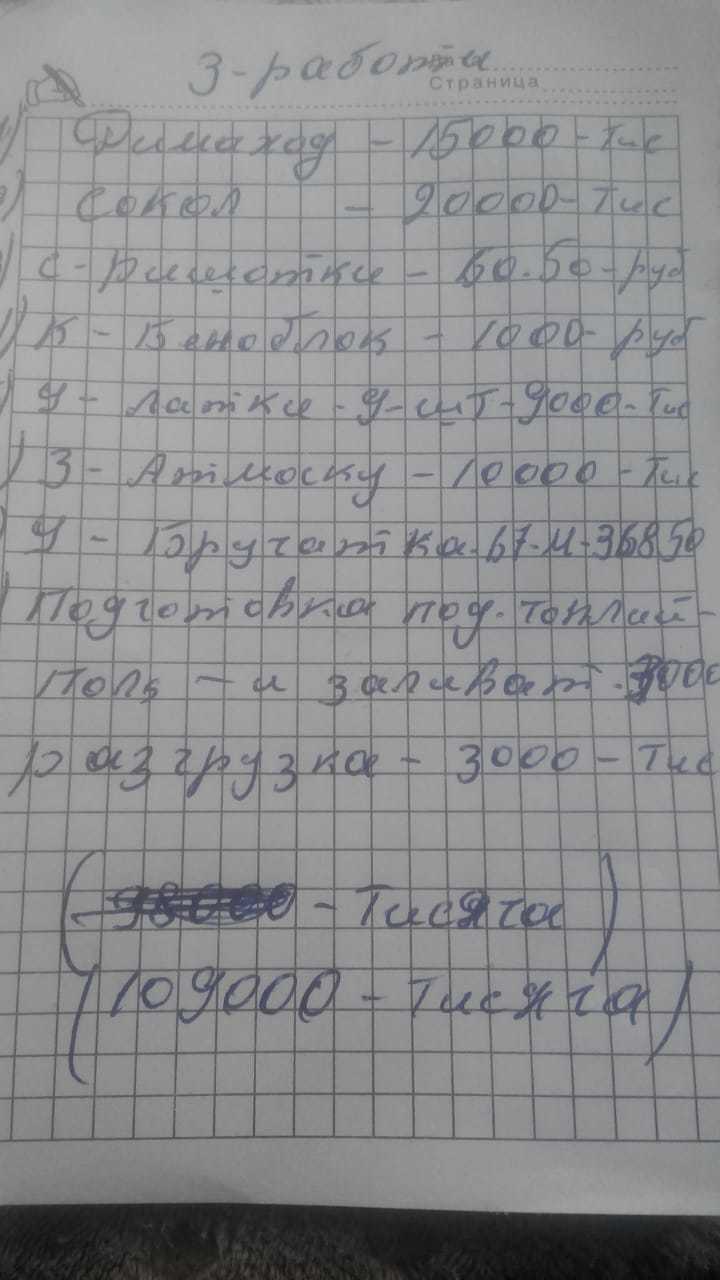 З-работи
Страница
Димаход - 15000-Тис
Сокол - 20000-Тис
С-Римотки - 60.50-руб
К - Беноблок - 1000-руб
У - латки - 9-шт-9000-Тис
З - Атмоску - 10000-Тис
У - Бручатка. 67-м-36850
Подготовка под. топлий-
Поль - и заливат. 7000
разгрузка - 3000-Тис
- Тисяча )
(109000 - Тисяча)